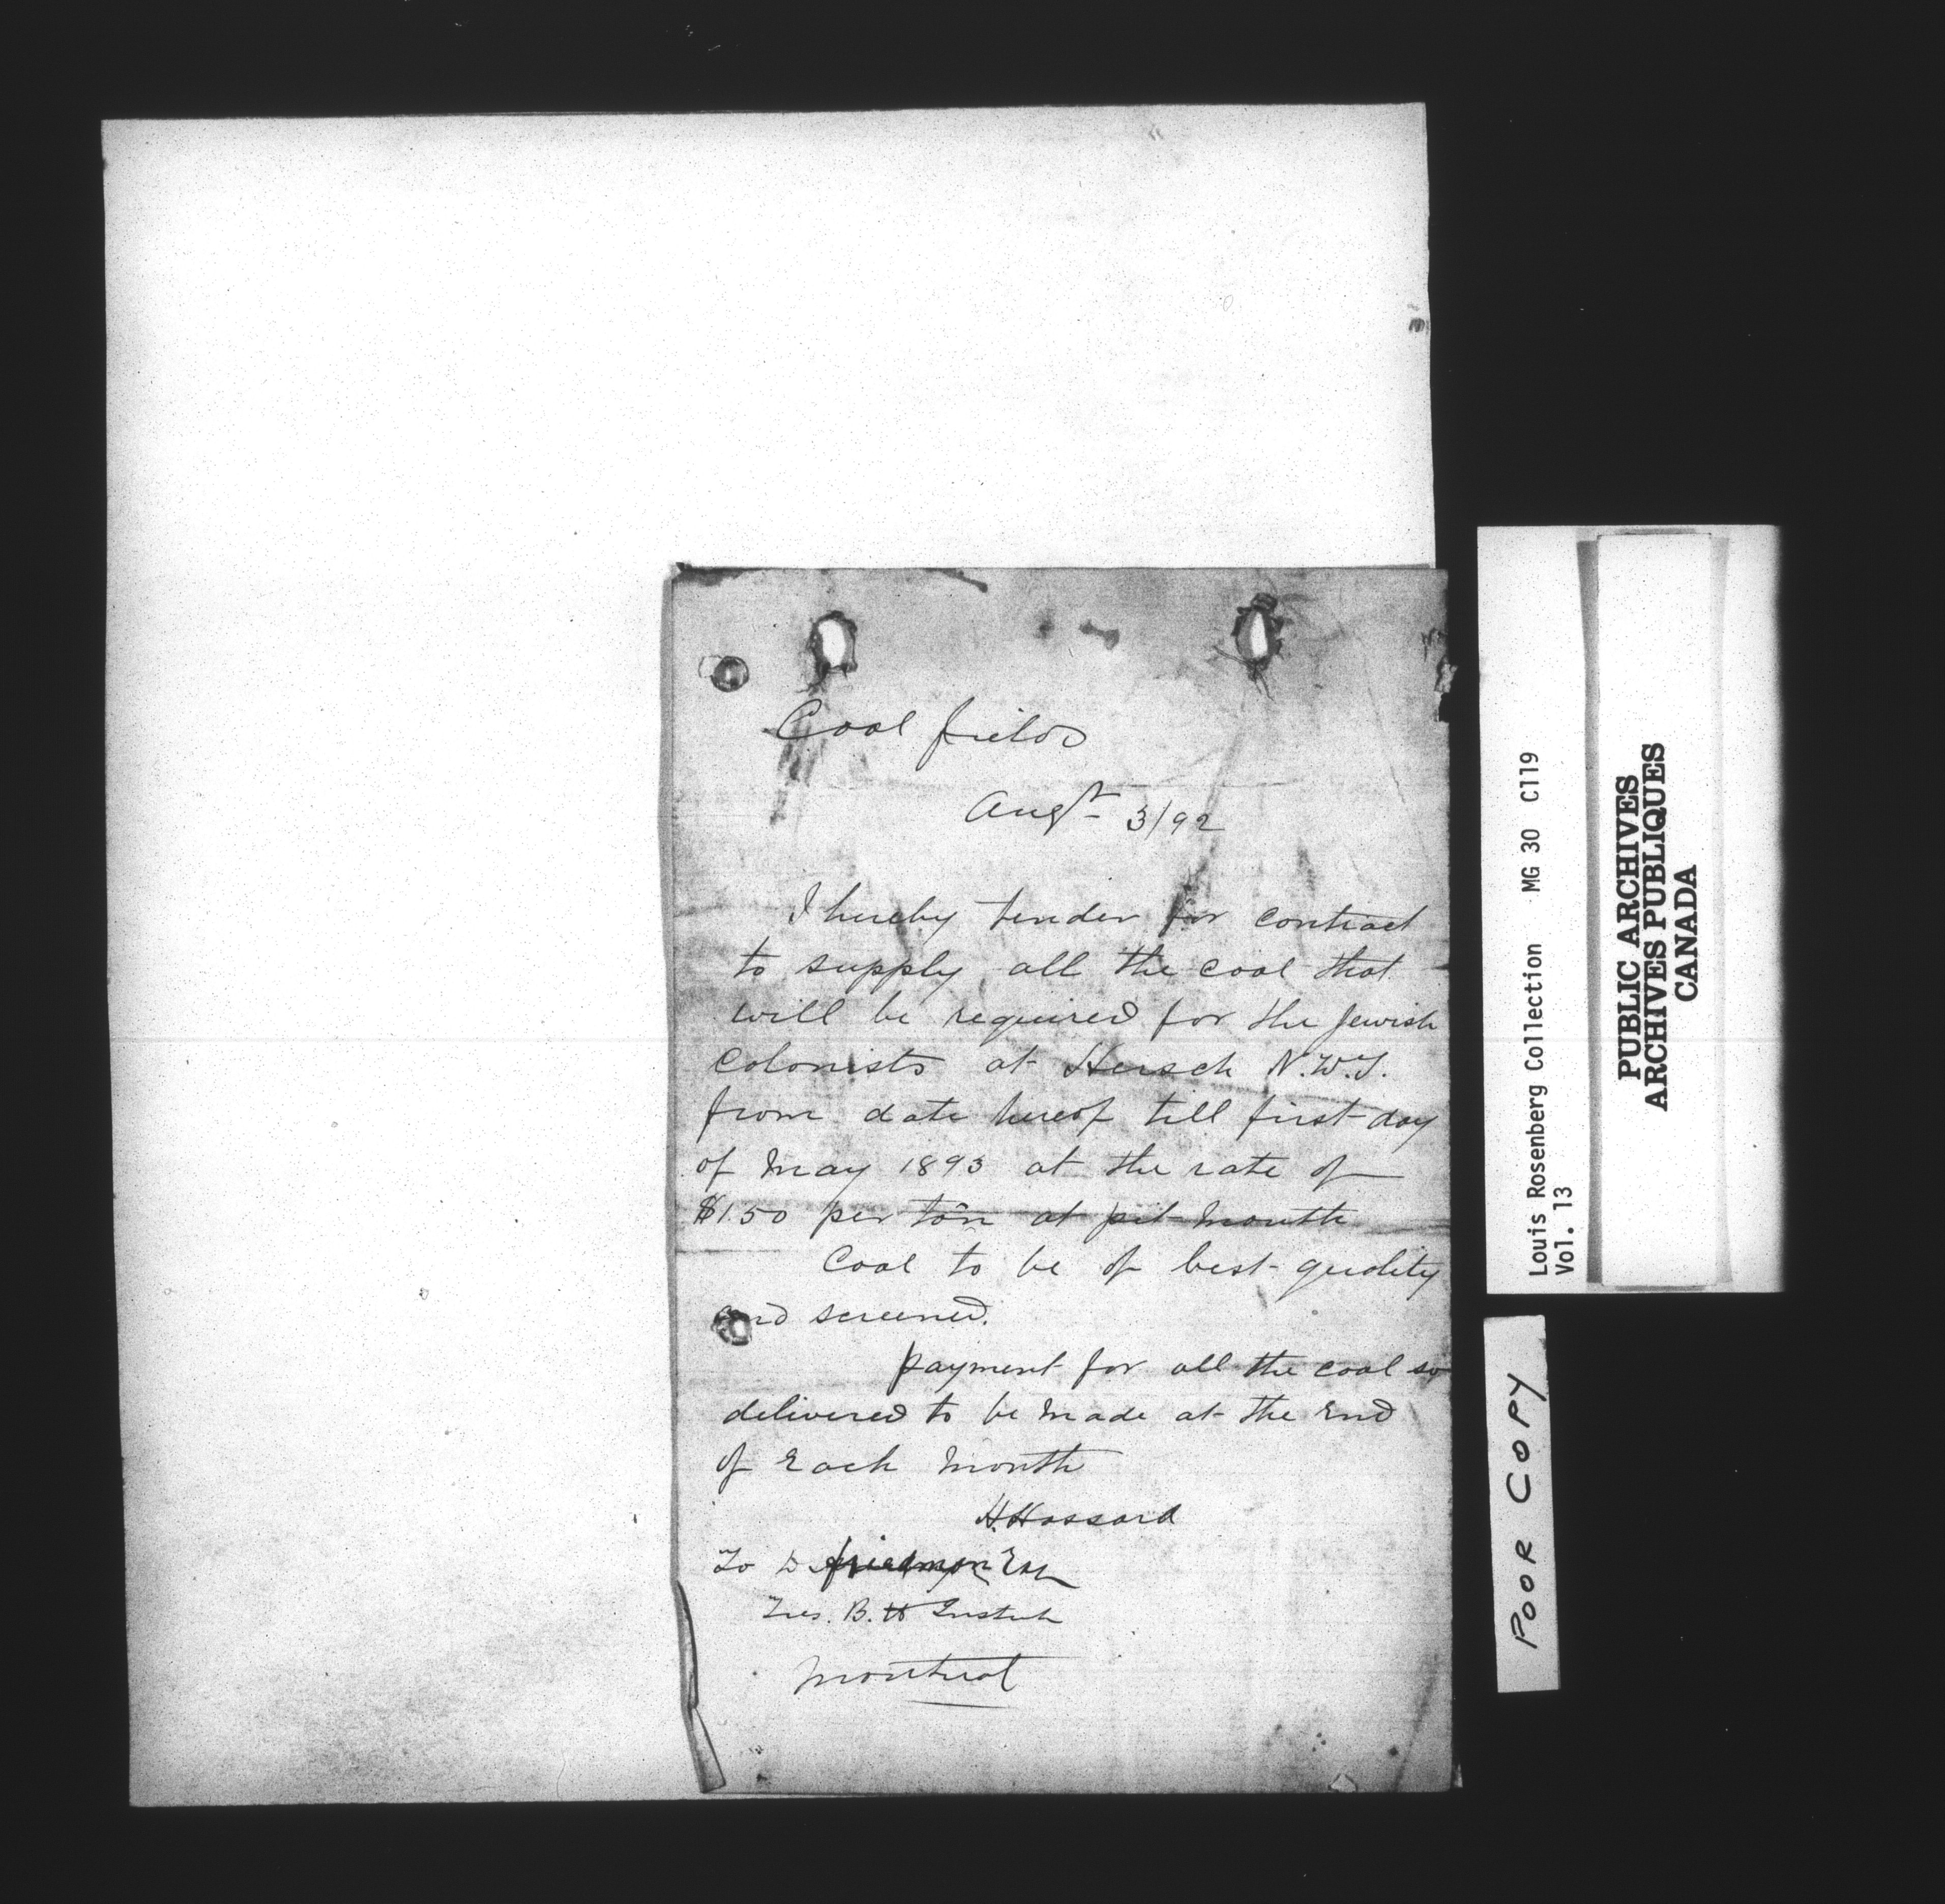 Coal fields
Augt 3/92
I hereby tender for contract
to supply all the coal that
will be required for the Jewish
colonists at Hersch N.W.T.
from date hereof till first day
of May 1893 at the rate of
$1.50 per ton at pit mouth
Coal to be of best quality
and screened.
payment for all the coal so
delivered to be made at the End
of Each month
H. Hassard
To D Friedman Esq
Tres. B. H Institute
Montreal
Louis Rosenberg Collection MG 30 C119
Vol. 13
PUBLIC ARCHIVES
ARCHIVES PUBLIQUES
CANADA
POOR COPY